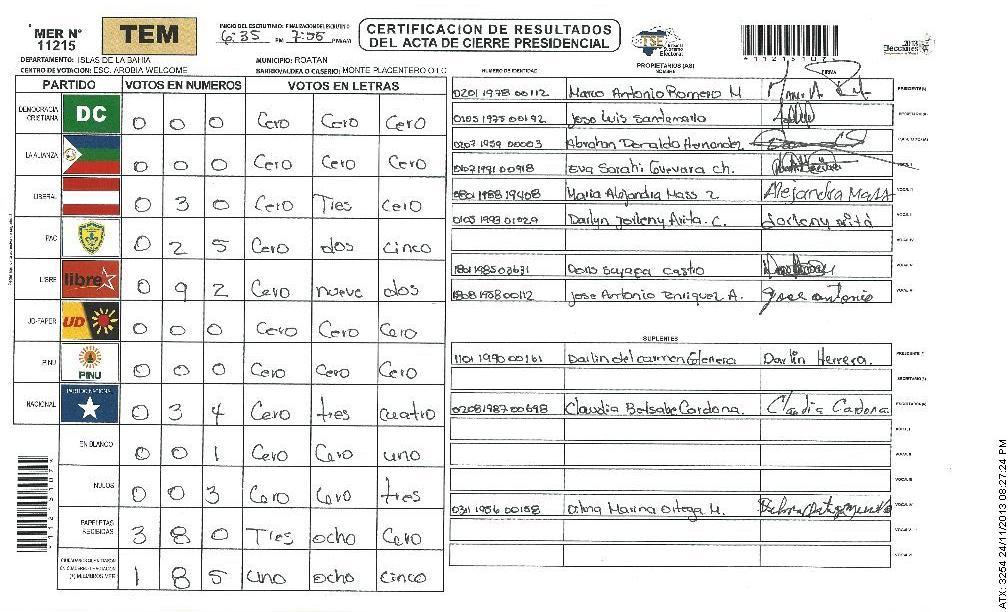 MER N° 11215
TEM
INICIO DEL ESCRUTINIO: FINALIZACION DEL ESCRUTINIO
6:35 PM 7:55 PM/AM
CERTIFICACION DE RESULTADOS
DEL ACTA DE CIERRE PRESIDENCIAL
TSE Tribunal Supremo Electoral
*11215107*
Elecciones 2013
DEPARTAMENTO: ISLAS DE LA BAHIA MUNICIPIO: ROATAN
CENTRO DE VOTACION: ESC. AROBIA WELCOME BARRIO/ALDEA O CASERIO: MONTE PLACENTERO O I C
PARTIDO VOTOS EN NUMEROS VOTOS EN LETRAS
DEMOCRACIA CRISTIANA DC 0 0 0 Cero Cero Cero
LA ALIANZA 0 0 0 Cero Cero Cero
LIBERAL 0 3 0 Cero Tres Cero
PAC 0 2 5 Cero dos cinco
LIBRE libre 0 9 2 Cero nueve dos
UD-FAPER UD 0 0 0 Cero Cero Cero
PINU PINU 0 0 0 Cero Cero Cero
NACIONAL PARTIDO NACIONAL 0 3 4 Cero tres cuatro
EN BLANCO 0 0 1 Cero Cero uno
NULOS 0 0 3 Cero Cero tres
PAPELETAS RECIBIDAS 3 8 0 Tres ocho Cero
1 8 5 uno ocho cinco
*11215107*
PROPIETARIOS (AS)
NUMERO DE IDENTIDAD NOMBRE FIRMA
0201 1978 00112 Marco Antonio Romero M PRESIDENTE(A)
0105 1975 00192 Jose Luis Santamaria SECRETARIO(A)
0207 1959 00003 Abrahan Doraldo Hernandez ESCRUTADOR(A)
01071991 00918 Eva Sarahi Guevara ch. VOCAL I
0801 1988 19408 Maria Alejandra Mass Z Alejandra Mass VOCAL II
0105 1993 01029 Darlyn Jorleny Arita C. Jorleny Arita VOCAL III
VOCAL IV
1801198503631 Doris Suyapa Castro VOCAL V
1808 1958 00112 Jose Antonio Enriquez A. Jose antonio VOCAL VI
SUPLENTES
1101 1990 00161 Darlin del carmen Darlin Herrera. PRESIDENTE(A)
SECRETARIO(A)
0208198700698 Claudia Betsabe Cardona. Claudia Cardona ESCRUTADOR(A)
VOCAL I
VOCAL II
VOCAL III
0311 1956 00158 Marina Ortega M. VOCAL IV
VOCAL V
VOCAL VI
ATX: 3254 24/11/2013 08:27:24 PM